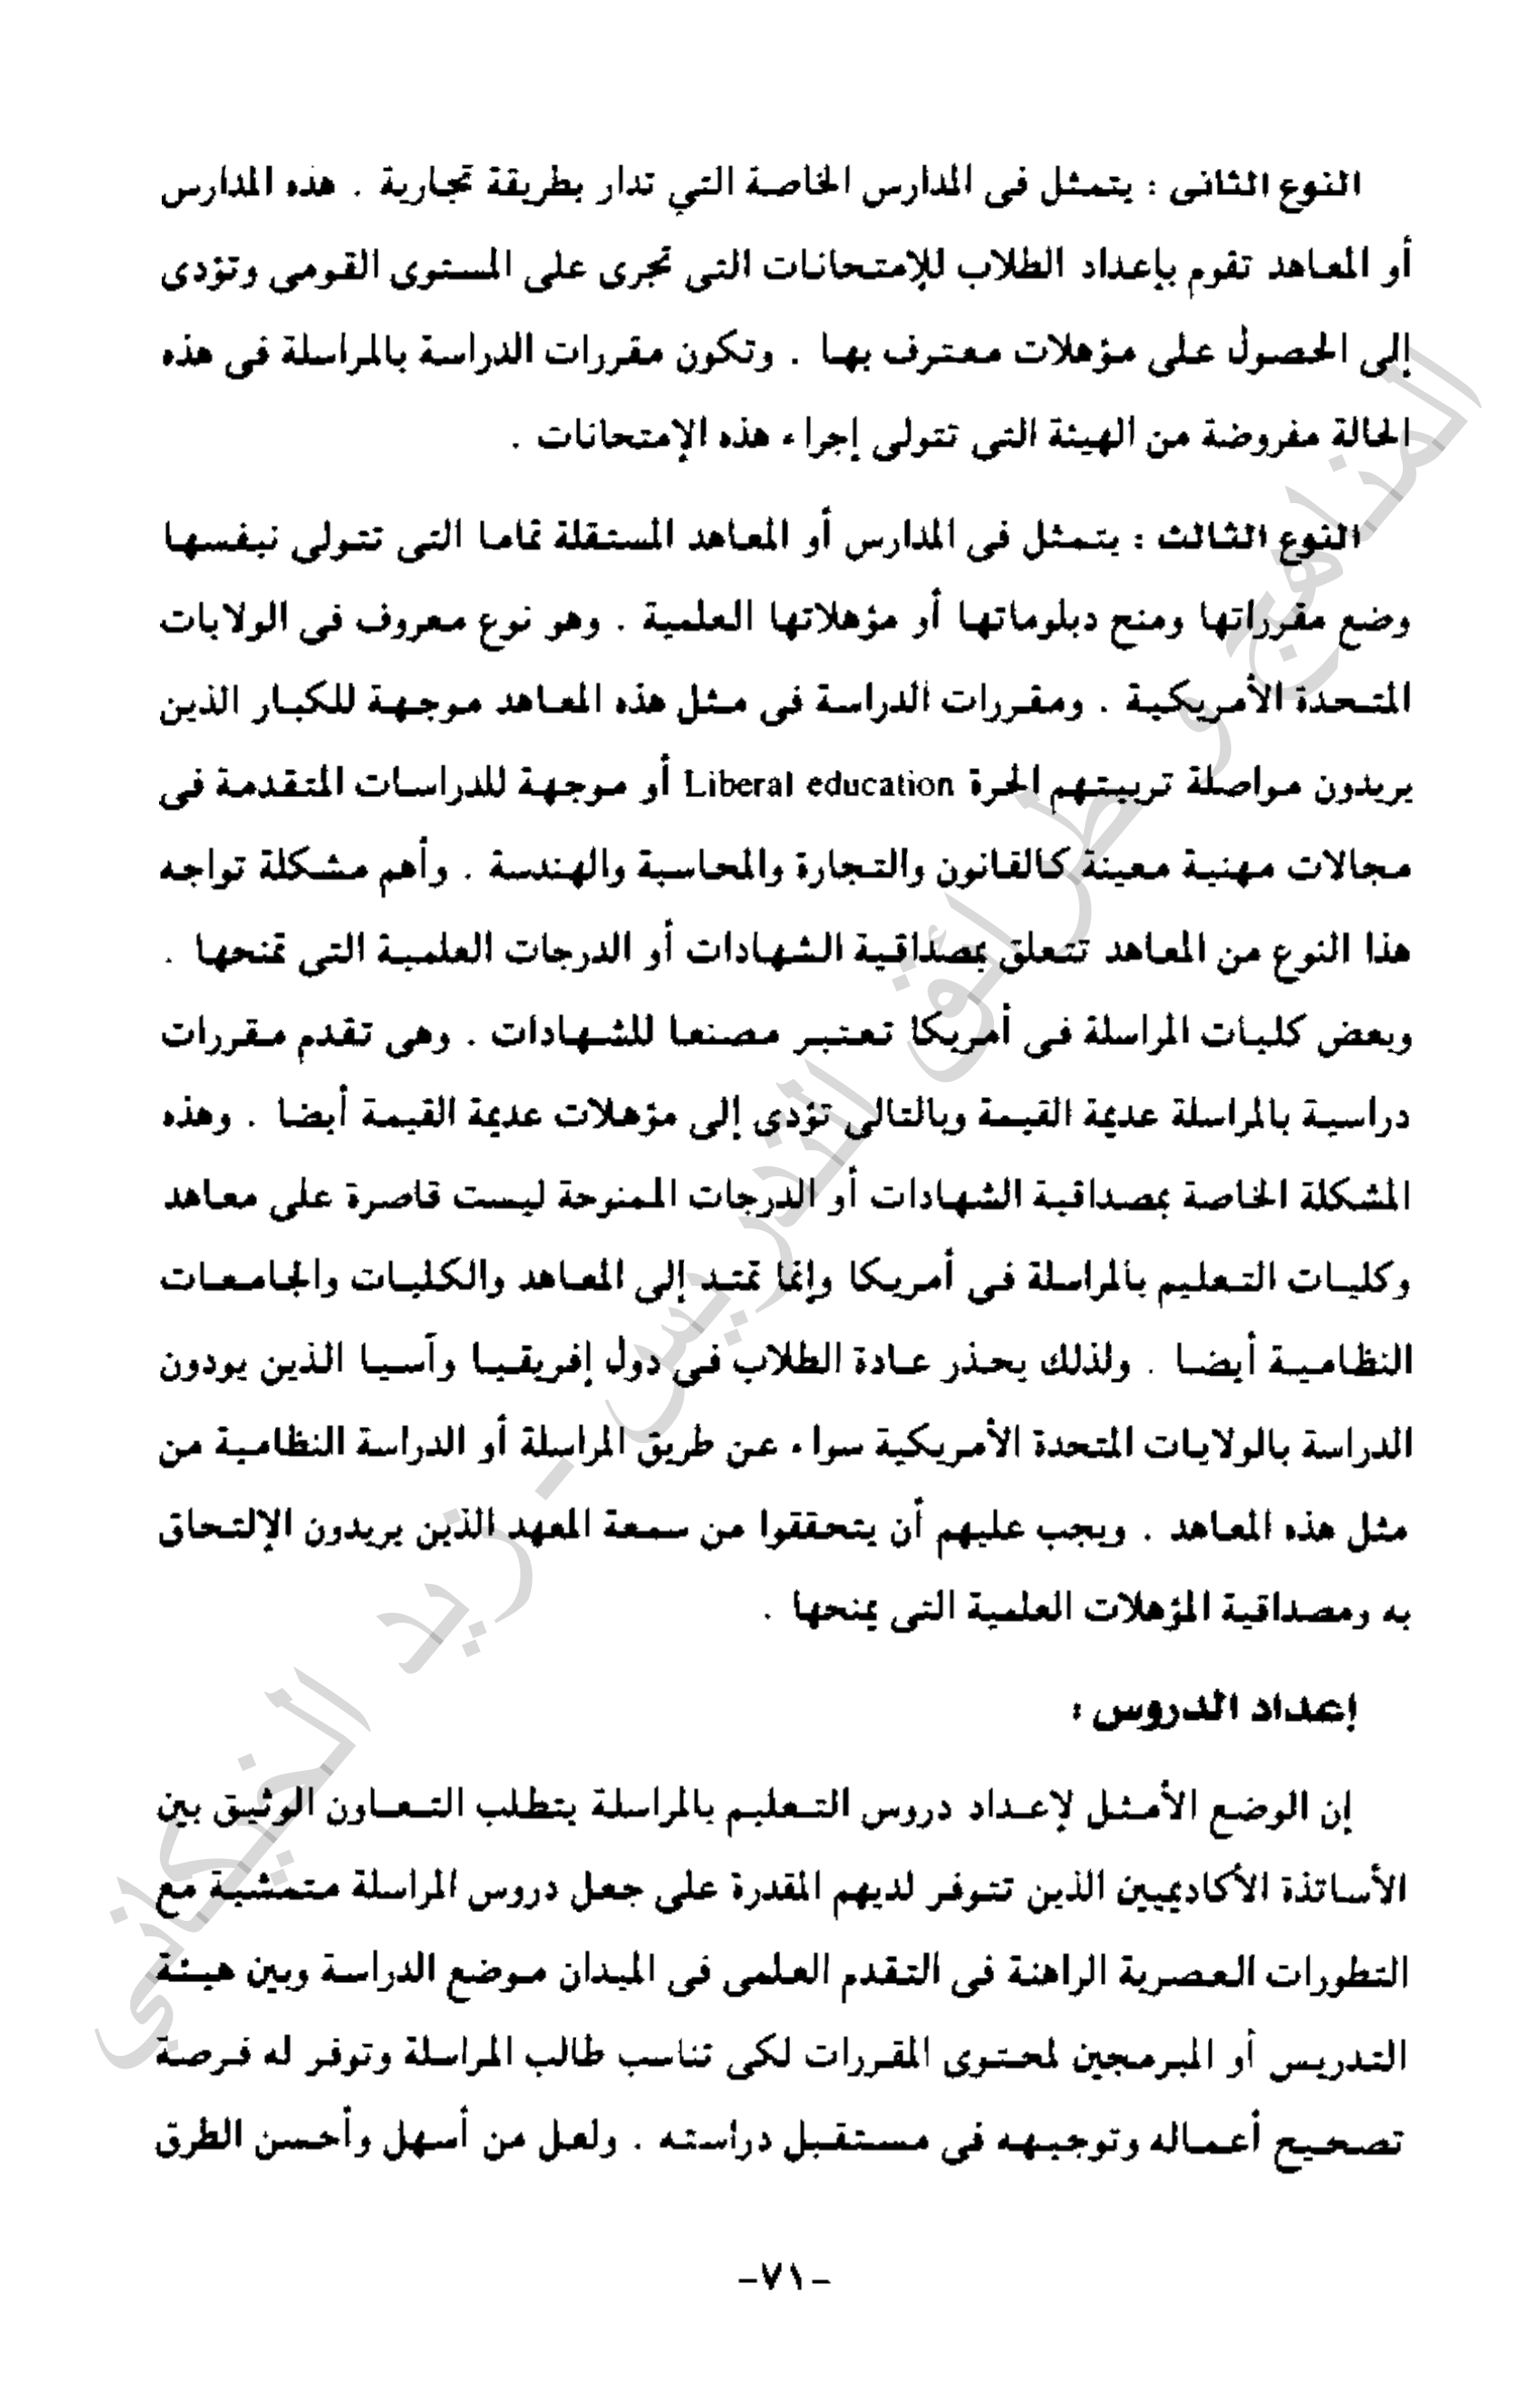 النوع الثانى : يتمثل فى المدارس الخاصة التي تدار بطريقة تجارية . هذه المدارس
أو المعاهد تقوم بإعداد الطلاب للإمتحانات التى تجرى على المستوى القومى وتؤدى
إلى الحصول على مؤهلات معترف بها . وتكون مقررات الدراسة بالمراسلة فى هذه
الحالة مفروضة من الهيئة التى تتولى إجراء هذه الإمتحانات .
النوع الثالث : يتمثل فى المدارس أو المعاهد المستقلة تماما التى تتولى نبفسها
وضع مقرراتها ومنح دبلوماتها أو مؤهلاتها العلمية . وهو نوع معروف فى الولايات
المتحدة الأمريكية . ومقررات الدراسة فى مثل هذه المعاهد موجهة للكبار الذين
يريدون مواصلة تربيتهم الحرة Liberal education أو موجهة للدراسات المتقدمة فى
مجالات مهنية معينة كالقانون والتجارة والمحاسبة والهندسة . وأهم مشكلة تواجه
هذا النوع من المعاهد تتعلق بمصداقية الشهادات أو الدرجات العلمية التى تمنحها .
وبعض كليات المراسلة فى أمريكا تعتبر مصنعا للشهادات . وهى تقدم مقررات
دراسية بالمراسلة عديمة القيمة وبالتالى تؤدى إلى مؤهلات عديمة القيمة أيضا . وهذه
المشكلة الخاصة بمصداقية الشهادات أو الدرجات الممنوحة ليست قاصرة على معاهد
وكليات التعليم بالمراسلة فى أمريكا وإنما تمتد إلى المعاهد والكليات والجامعات
النظامية أيضا . ولذلك يحذر عادة الطلاب فى دول إفريقيا وآسيا الذين يودون
الدراسة بالولايات المتحدة الأمريكية سواء عن طريق المراسلة أو الدراسة النظامية من
مثل هذه المعاهد . ويجب عليهم أن يتحققوا من سمعة المعهد الذين يريدون الإلتحاق
به ومصداقية المؤهلات العلمية التى يمنحها .
إعداد الدروس :
إن الوضع الأمثل لإعداد دروس التعليم بالمراسلة يتطلب التعاون الوثيق بين
الأساتذة الأكاديميين الذين تتوفر لديهم المقدرة على جعل دروس المراسلة متمشية مع
التطورات العصرية الراهنة فى التقدم العلمى فى الميدان موضع الدراسة وبين هيئة
التدريس أو المبرمجين لمحتوى المقررات لكى تناسب طالب المراسلة وتوفر له فرصة
تصحيح أعماله وتوجيهه فى مستقبل دراسته . ولعل من أسهل وأحسن الطرق
-٧١-
المناهج و طرائق التدريس - زيد الخيكاني